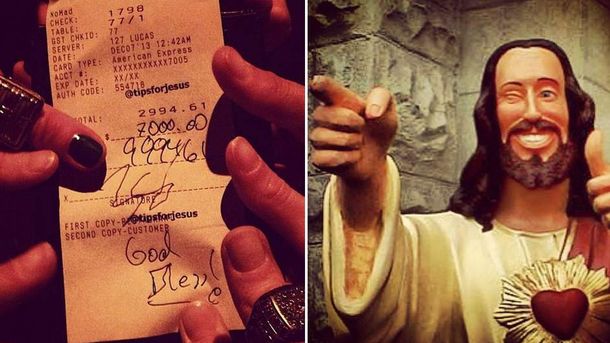 NoMad 1798
CHECK: 77/1
TABLE: 77
GST CHKID: 127 LUCAS
SERVER:
DATE: DEC07'13 12:42AM
CARD TYPE: American Express
ACCT #: XXXXXXXXXXX7005
EXP DATE: XX/XX
AUTH CODE: 554718
@tipsforjesus
TOTAL: 2994.61
$ 7000.00
9994.61
X
SIGNATURE
@tipsforjesus
FIRST COPY-
SECOND COPY-CUSTOMER
God
Bless!